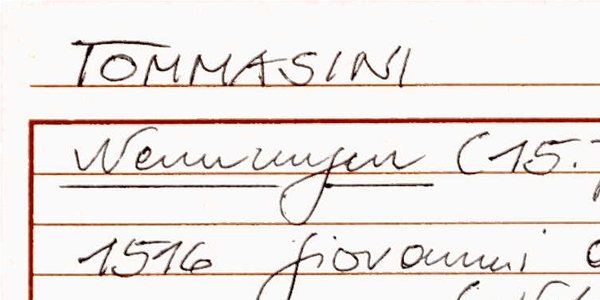 TOMMASINI
Nennungen (15.
1516 Giovanni